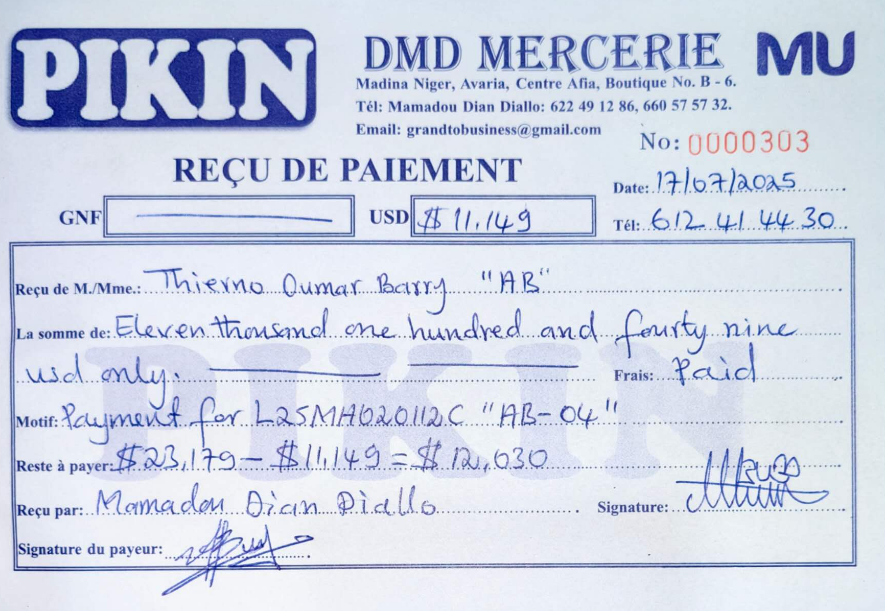 PIKIN
DMD MERCERIE
MU
Madina Niger, Avaria, Centre Afia, Boutique No. B - 6.
Tél: Mamadou Dian Diallo: 622 49 12 86, 660 57 57 32.
Email: grandtobusiness@gmail.com
No: 0000303
REÇU DE PAIEMENT
Date: 17/07/2025
GNF
USD $ 11,149
Tél: 612 41 44 30
Reçu de M./Mme.: Thierno Oumar Barry "AB"
La somme de: Eleven thousand one hundred and fourty nine
usd only.
Frais: Paid
Motif: Payment for L25MA020112C "AB-04"
Reste à payer: $23,179 - $11,149 = $12,030
Reçu par: Mamadou Dian Diallo
Signature:
Signature du payeur:
PIKIN